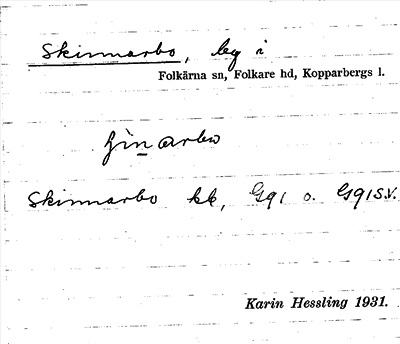 Skinnarbo, beg i
Folkärna sn, Folkare hd, Kopparbergs l.
Skinnarbo kb, Gg1 o. Gg1S.V.
Karin Hessling 1931.